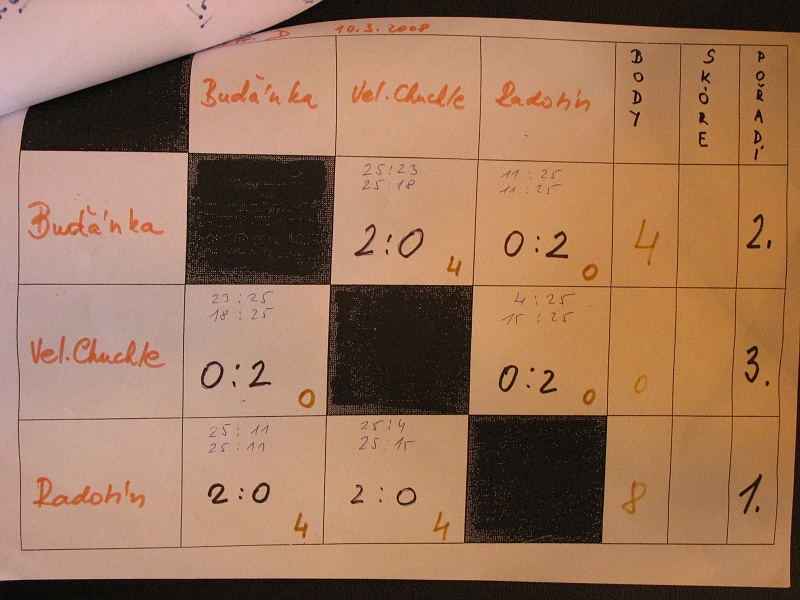 10.3.2008
Buďánka Vel.Chuchle Radotín BODY SKÓRE POŘADÍ
25:23 11:25
25:18 11:25
Buďánka 2:0 4 0:2 0 4 2.
23:25 4:25
18:25 15:25
Vel.Chuchle 0:2 0 0:2 0 0 3.
25:11 25:4
25:11 25:15
Radotín 2:0 4 2:0 4 8 1.